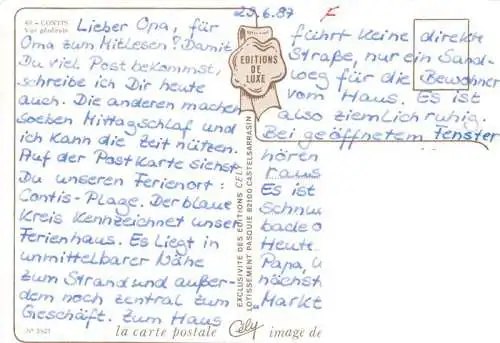 40 - CONTIS
Vue générale
29.6.87
F
Lieber Opa, für
Oma zum Mitlesen? Damit
Du viel Post bekommst,
schreibe ich Dir heute
auch. Die anderen machen
soeben Mittagschlaf und
ich kann die Zeit nützen.
Auf der Postkarte siehst
Du unseren Ferienort:
Contis-Plage. Der blaue
Kreis kennzeichnet unser
Ferienhaus. Es liegt in
unmittelbarer Nähe
zum Strand und außer-
dem noch zentral zum
Geschäft. Zum Haus
EDITIONS
DE
LUXE
EXCLUSIVITE DES EDITIONS CELY
LOTISSEMENT PASQUIE 82100 CASTELSARRASIN
führt keine direkte
Straße, nur ein Sand-
weg für die Bewohner
vom Haus. Es ist
also ziemlich ruhig.
Bei geöffnetem Fenster
hören
raus
Es ist
Schnu
bade o
Heute
Papa, u
nächst
"Markt
la carte postale Cely image de